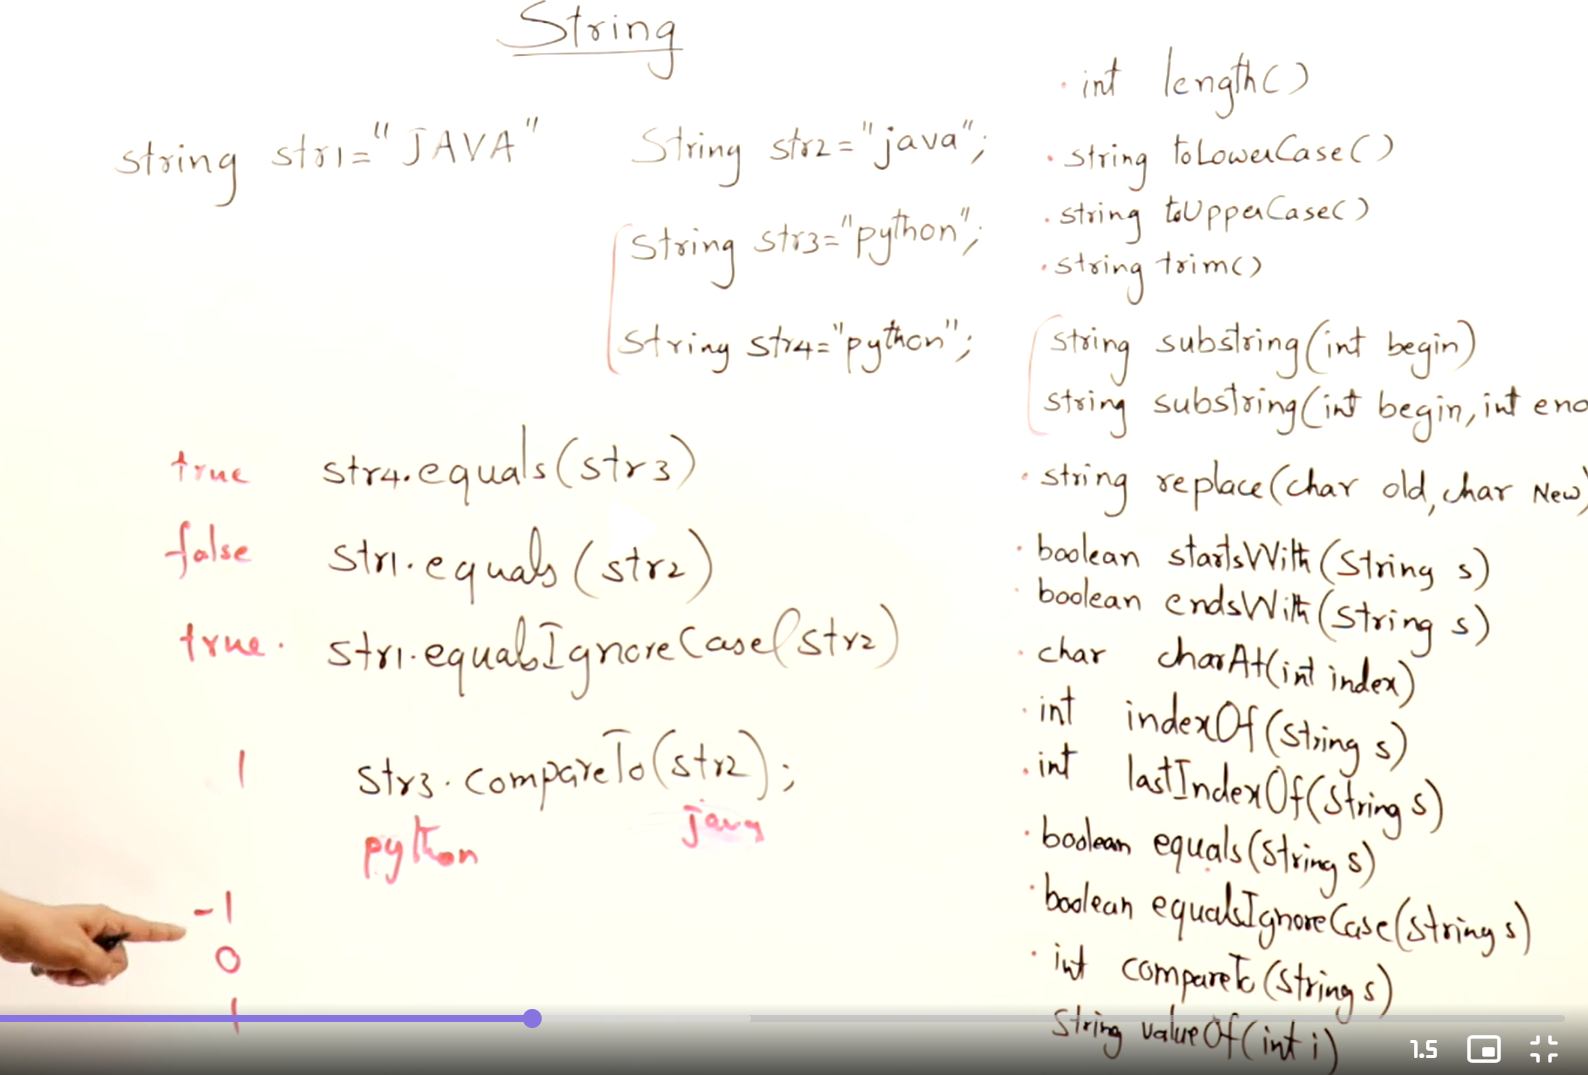 String
string str1="JAVA"
String str2="java";
String str3="python";
String str4="python";
true str4.equals(str3)
false str1.equals(str2)
true. str1.equalsIgnoreCase(str2)
1 str3.compareTo(str2);
python java
-1
0
1
· int length()
· string toLowerCase()
· string toUpperCase()
· string trim()
string substring(int begin)
string substring(int begin, int end
· string replace(char old, char New)
· boolean startsWith(String s)
· boolean endsWith(String s)
· char charAt(int index)
· int indexOf(String s)
· int lastIndexOf(String s)
· boolean equals(String s)
· boolean equalsIgnoreCase(String s)
· int compareTo(String s)
String valueOf(int i)
1.5